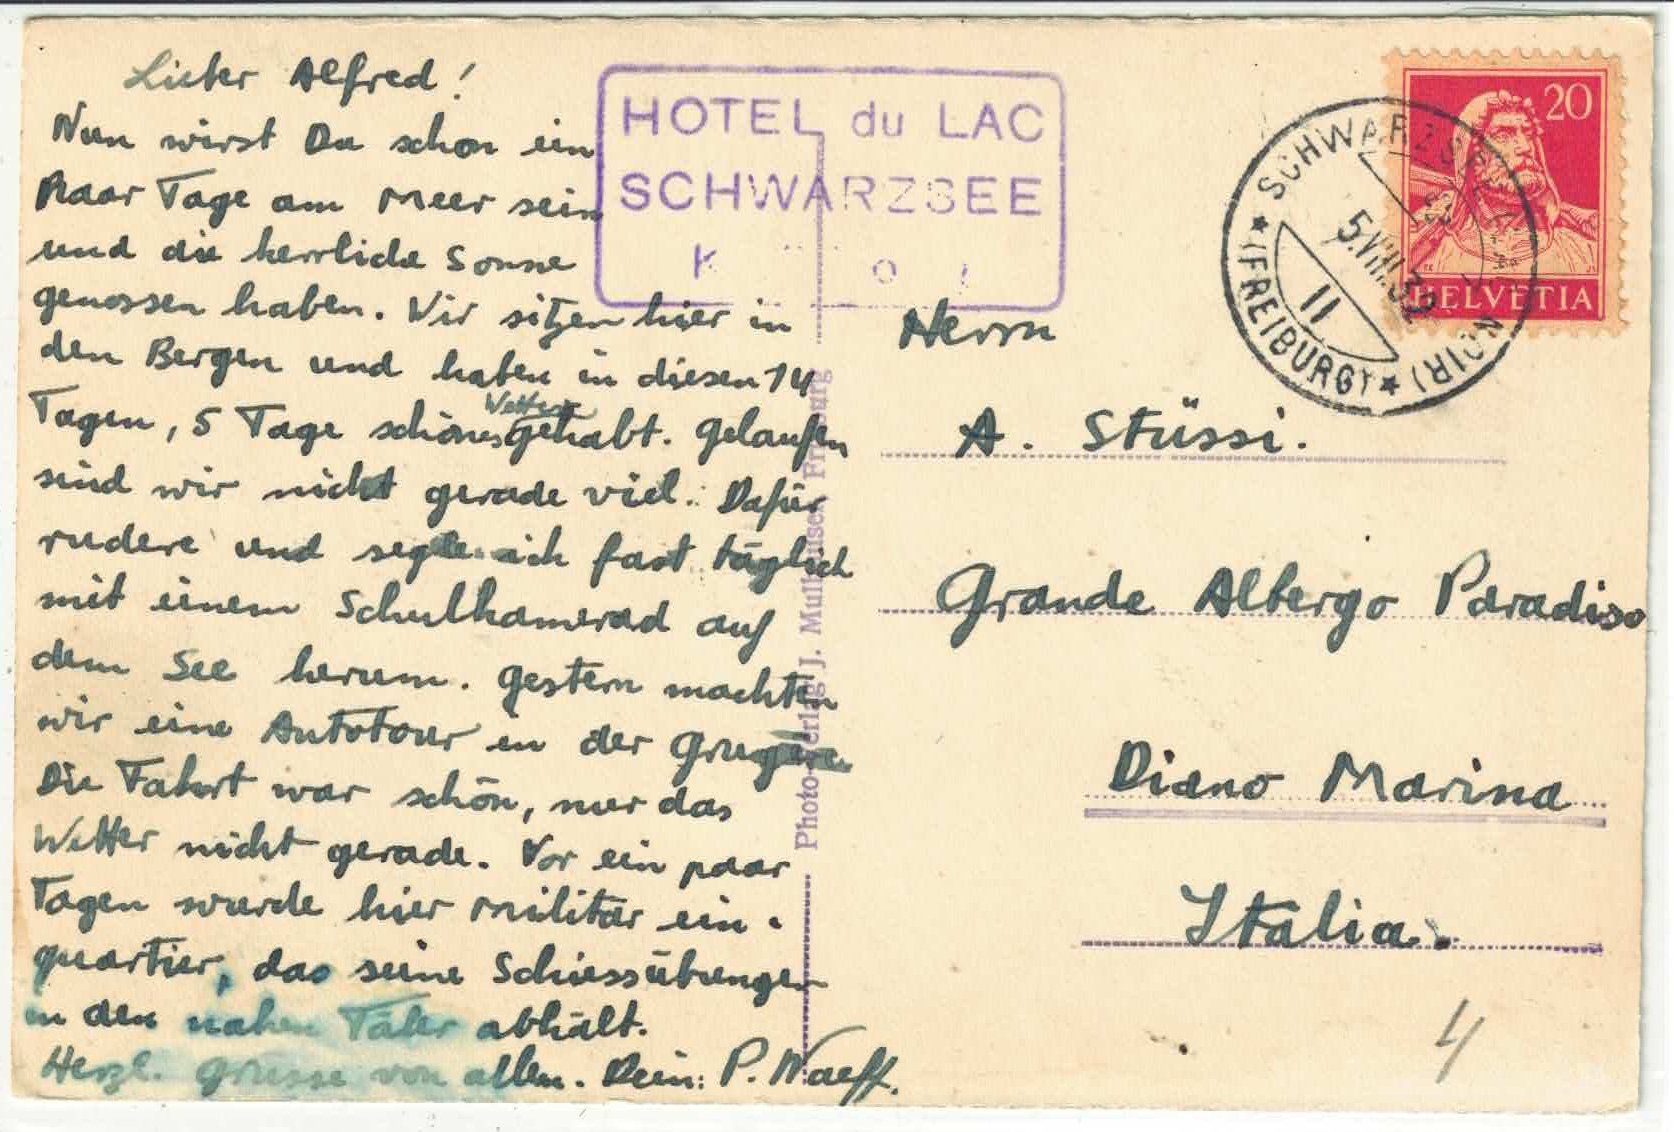 Lieber Alfred!
Nun wirst Du schon ein
Paar Tage am Meer sein
und die herrliche Sonne
genossen haben. Wir sitzen hier in
den Bergen und haben in diesen 14
Tagen, 5 Tage schönes Wetter gehabt. Gelaufen
sind wir nicht gerade viel. Dafür
rudere und segle ich fast täglich
mit einem Schulkamerad auf
dem See herum. Gestern machten
wir eine Autotour in der
Die Fahrt war schön, nur das
Wetter nicht gerade. Vor ein paar
Tagen wurde hier Militär ein-
quartier, das seine Schiessübungen
in den nahen Täler abhält.
Herzl. Grüsse von allen. Dein: P. Waeff.
HOTEL du LAC
SCHWARZSEE
Photo-Verlag J. Mulhauser Friburg
20
HELVETIA
SCHWARZSEE
(FREIBURG)
5.VIII.32
11
Herrn
A. Stüssi.
Grande Albergo Paradiso
Diano Marina
Italia.
4